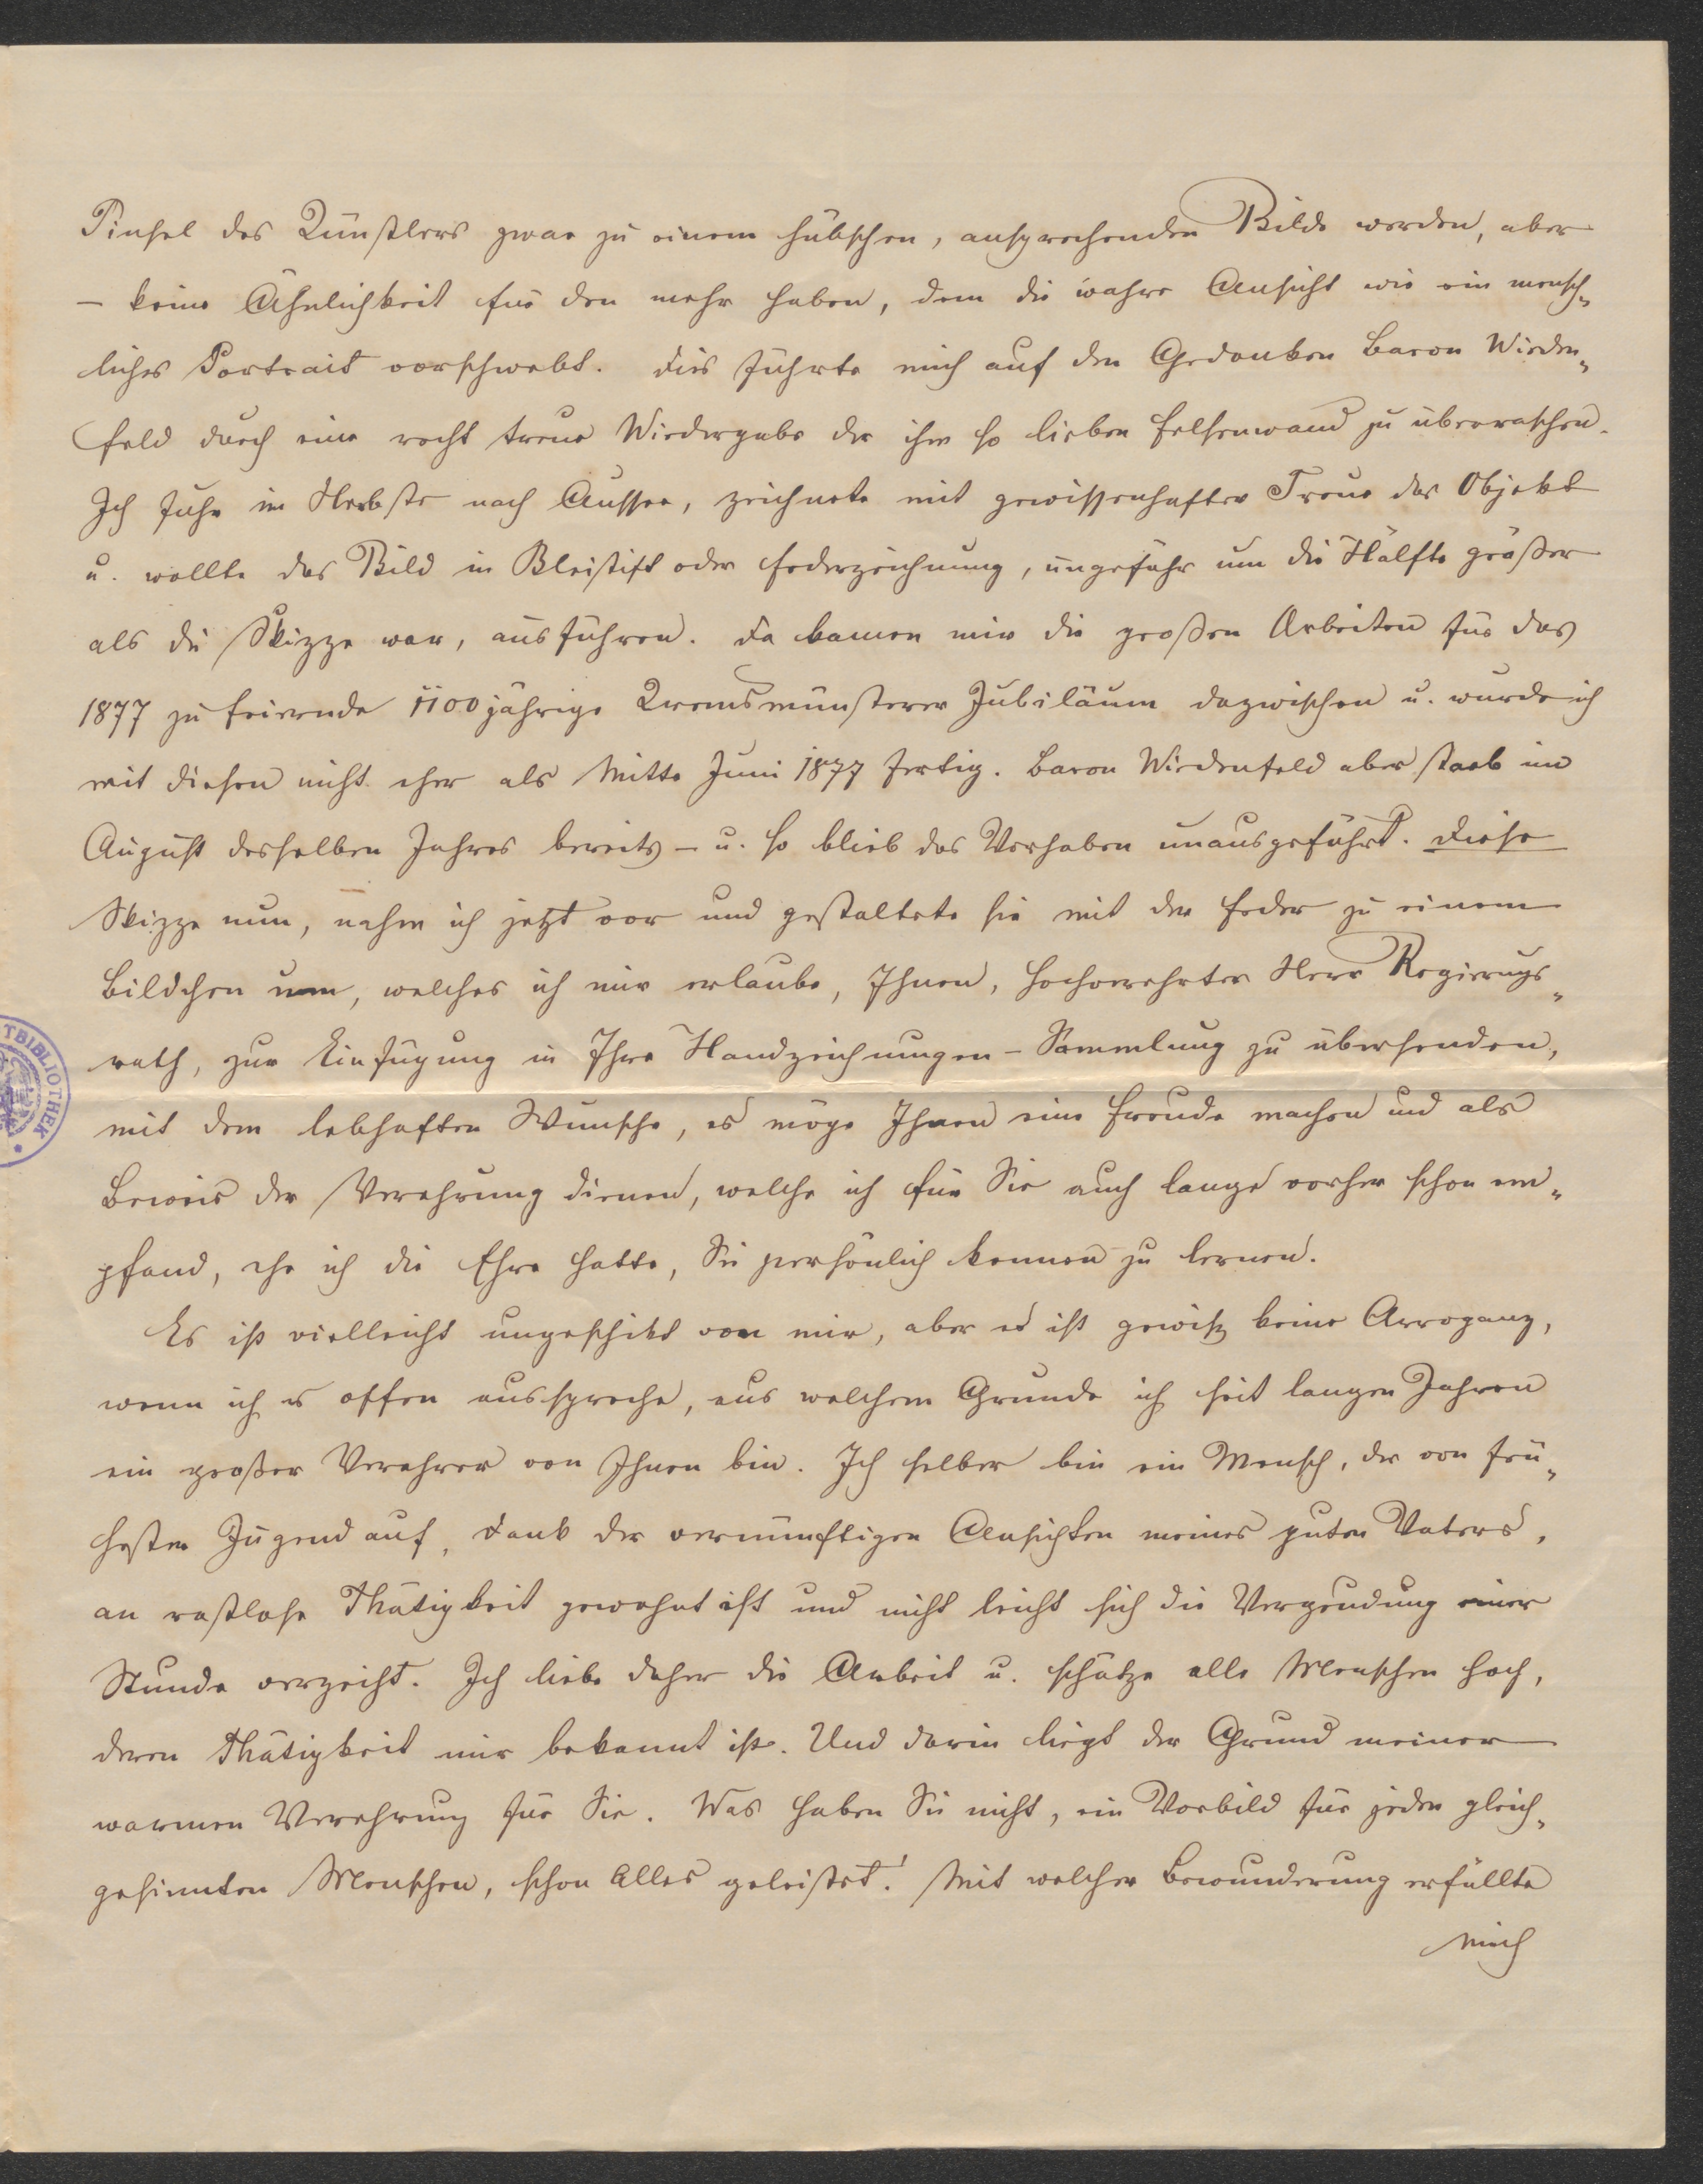 Pinsel des Künstlers zwar zu einem hübschen, ansprechenden Bilde werden, aber
– keine Ähnlichkeit für den mehr haben, dem die wahre Ansicht wie ein mensch„
liches Portrait vorschwebt. Dies führte mich auf den Gedanken Baron Wieden„
feld durch eine recht treue Wiedergabe der ihm so lieben Felsenwand zu überraschen.
Ich fuhr im Herbste nach Aussee, zeichnete mit gewissenhafter Treue das Objekt
u. wollte das Bild in Bleistift oder Federzeichnung, ungefähr um die Hälfte größer
als die Skizze war, ausführen. Da kamen mir die großen Arbeiten für das
1877 zu feiernde 1100jährige Kremsmünsterer Jubiläum dazwischen u. wurde ich
mit diesen nicht eher als Mitte Juni 1877 fertig. Baron Wiedenfeld aber starb im
August desselben Jahres bereits – u. so blieb das Vorhaben unausgeführt. Diese
Skizze nun, nahm ich jetzt vor und gestaltete sie mit der Feder zu einem
Bildchen um, welches ich mir erlaube, Ihnen, hochverehrter Herr Regierungs„
rath, zur Einfügung in Ihre Handzeichnungen-Sammlung zu übersenden,
mit dem lebhaften Wunsche, es möge Ihnen eine Freude machen und als
Beweis der Verehrung dienen, welche ich für Sie auch lange vorher schon em„
pfand, ehe ich die Ehre hatte, Sie persönlich kennen zu lernen.
Es ist vielleicht ungeschikt von mir, aber es ist gewiß keine Arroganz,
wenn ich es offen ausspreche, aus welchem Grunde ich seit langen Jahren
ein großer Verehrer von Ihnen bin. Ich selber bin ein Mensch, der von frü„
hester Jugend auf, Dank der vernünftigen Ansichten meines guten Vaters,
an rastlose Thätigkeit gewohnt ist und nicht leicht sich die Vergeudung einer
Stunde verzeiht. Ich liebe daher die Arbeit u. schätze alle Menschen hoch,
deren Thätigkeit mir bekannt ist. Und darin liegt der Grund meiner
warmen Verehrung für Sie. Was haben Sie nicht, ein Vorbild für jeden gleich„
gesinnten Menschen, schon Alles geleistet! Mit welcher Bewunderung erfüllte
mich
TBIBLIOTHEK